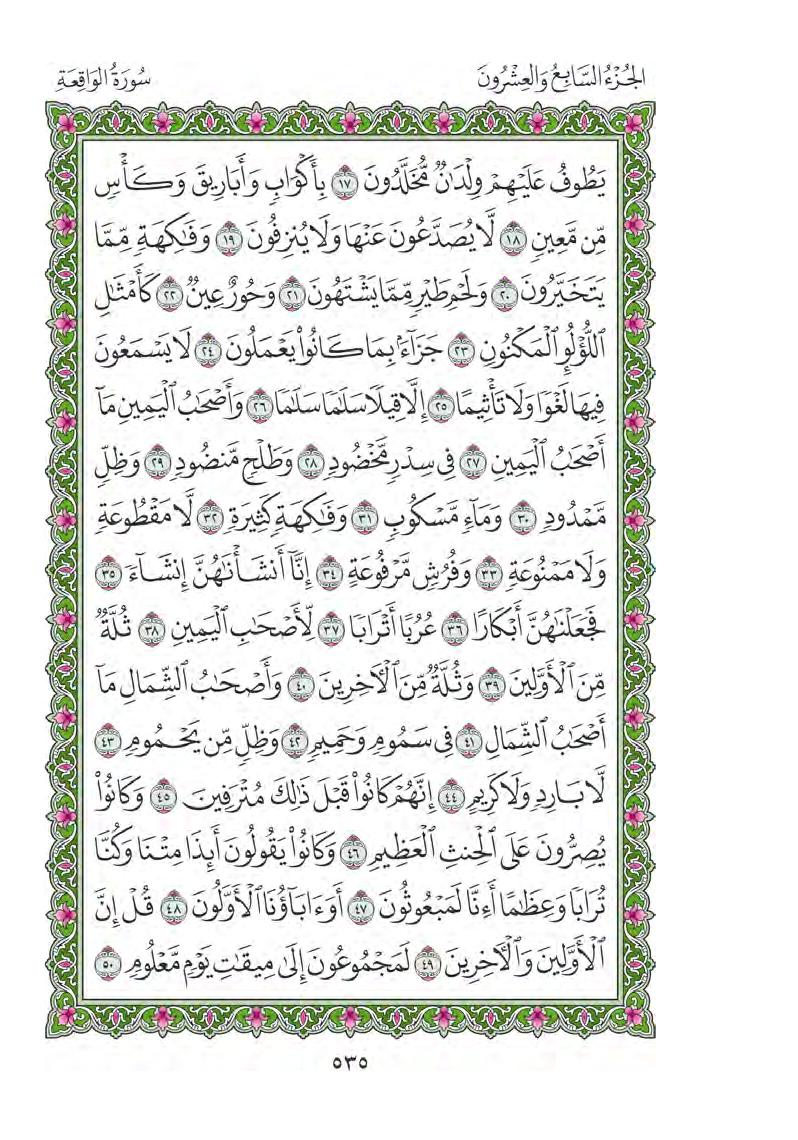 الجُزْءُ السَّابِعُ وَالعِشْرُونَ سُورَةُ الوَاقِعَةِ
يَطُوفُ عَلَيْهِمْ وِلْدَٰنٌ مُّخَلَّدُونَ ١٧ بِأَكْوَابٍ وَأَبَارِيقَ وَكَأْسٍ
مِّن مَّعِينٍ ١٨ لَّا يُصَدَّعُونَ عَنْهَا وَلَا يُنزِفُونَ ١٩ وَفَٰكِهَةٍ مِّمَّا
يَتَخَيَّرُونَ ٢٠ وَلَحْمِ طَيْرٍ مِّمَّا يَشْتَهُونَ ٢١ وَحُورٌ عِينٌ ٢٢ كَأَمْثَٰلِ
اللُّؤْلُؤِ الْمَكْنُونِ ٢٣ جَزَآءًۢ بِمَا كَانُوا۟ يَعْمَلُونَ ٢٤ لَا يَسْمَعُونَ
فِيهَا لَغْوًا وَلَا تَأْثِيمًا ٢٥ إِلَّا قِيلًا سَلَٰمًا سَلَٰمًا ٢٦ وَأَصْحَٰبُ الْيَمِينِ مَآ
أَصْحَٰبُ الْيَمِينِ ٢٧ فِى سِدْرٍ مَّخْضُودٍ ٢٨ وَطَلْحٍ مَّنضُودٍ ٢٩ وَظِلٍّ
مَّمْدُودٍ ٣٠ وَمَآءٍ مَّسْكُوبٍ ٣١ وَفَٰكِهَةٍ كَثِيرَةٍ ٣٢ لَّا مَقْطُوعَةٍ
وَلَا مَمْنُوعَةٍ ٣٣ وَفُرُشٍ مَّرْفُوعَةٍ ٣٤ إِنَّآ أَنشَأْنَٰهُنَّ إِنشَآءً ٣٥
فَجَعَلْنَٰهُنَّ أَبْكَارًا ٣٦ عُرُبًا أَتْرَابًا ٣٧ لِّأَصْحَٰبِ الْيَمِينِ ٣٨ ثُلَّةٌ
مِّنَ الْأَوَّلِينَ ٣٩ وَثُلَّةٌ مِّنَ الْـَٔاخِرِينَ ٤٠ وَأَصْحَٰبُ الشِّمَالِ مَآ
أَصْحَٰبُ الشِّمَالِ ٤١ فِى سَمُومٍ وَحَمِيمٍ ٤٢ وَظِلٍّ مِّن يَحْمُومٍ ٤٣
لَّا بَارِدٍ وَلَا كَرِيمٍ ٤٤ إِنَّهُمْ كَانُوا۟ قَبْلَ ذَٰلِكَ مُتْرَفِينَ ٤٥ وَكَانُوا۟
يُصِرُّونَ عَلَى الْحِنثِ الْعَظِيمِ ٤٦ وَكَانُوا۟ يَقُولُونَ أَئِذَا مِتْنَا وَكُنَّا
تُرَابًا وَعِظَٰمًا أَءِنَّا لَمَبْعُوثُونَ ٤٧ أَوَءَابَآؤُنَا الْأَوَّلُونَ ٤٨ قُلْ إِنَّ
الْأَوَّلِينَ وَالْـَٔاخِرِينَ ٤٩ لَمَجْمُوعُونَ إِلَىٰ مِيقَٰتِ يَوْمٍ مَّعْلُومٍ ٥٠
٥٣٥